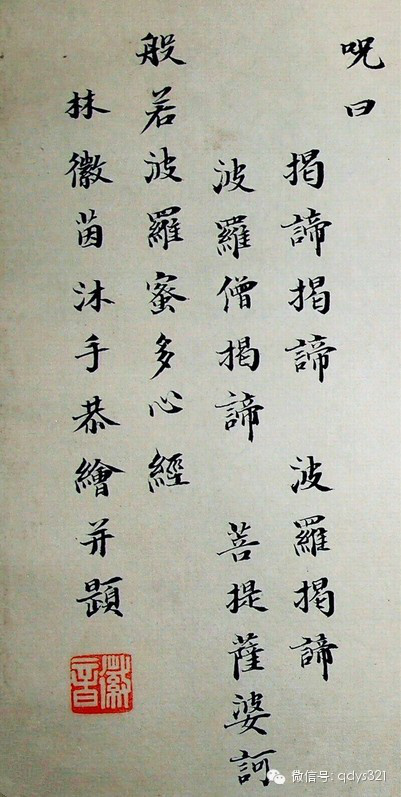 呪曰
揭諦揭諦 波羅揭諦
波羅僧揭諦 菩提薩婆訶
般若波羅蜜多心經
林徽茵沐手恭繪并題
徽音
微信号: qdys321